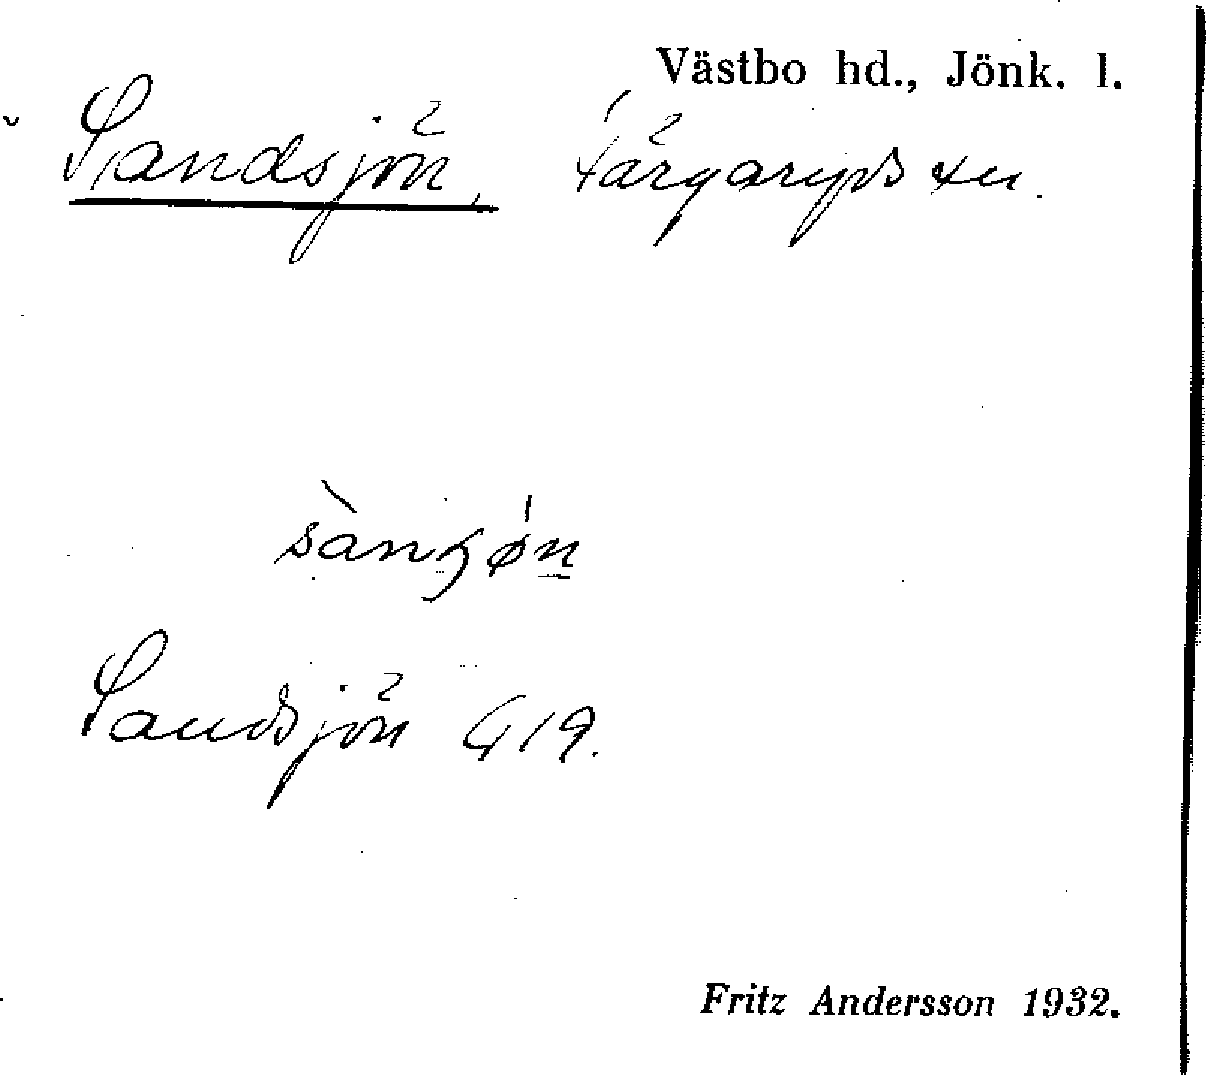 Västbo hd., Jönk. l.
Sandsjön, Färgaryds sn.
sànʒǿn
Sandsjön G 19.
Fritz Andersson 1932.